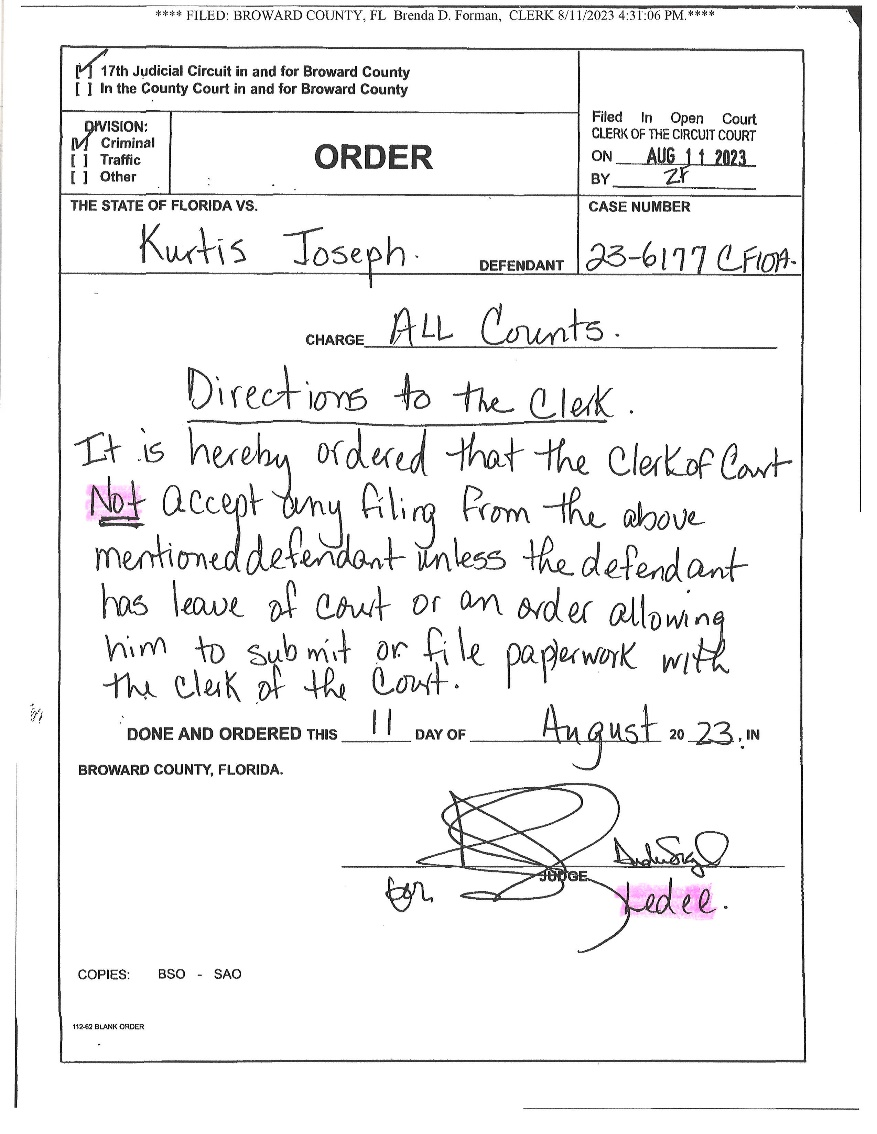 **** FILED: BROWARD COUNTY, FL Brenda D. Forman, CLERK 8/11/2023 4:31:06 PM.****
[✓] 17th Judicial Circuit in and for Broward County
[ ] In the County Court in and for Broward County
DIVISION:
[✓] Criminal
[ ] Traffic
[ ] Other
ORDER
Filed In Open Court
CLERK OF THE CIRCUIT COURT
ON AUG 11 2023
BY ZF
THE STATE OF FLORIDA VS.
Kurtis Joseph.
DEFENDANT
CASE NUMBER
23-6177 CF10A.
CHARGE ALL Counts.
Directions to the Clerk.
It is hereby ordered that the Clerk of Court
Not accept any filing from the above
mentioned defendant unless the defendant
has leave of court or an order allowing
him to submit or file paperwork with
the Clerk of the Court.
DONE AND ORDERED THIS 11 DAY OF August 20 23, IN
BROWARD COUNTY, FLORIDA.
JUDGE
for Ledee.
COPIES: BSO - SAO
112-62 BLANK ORDER